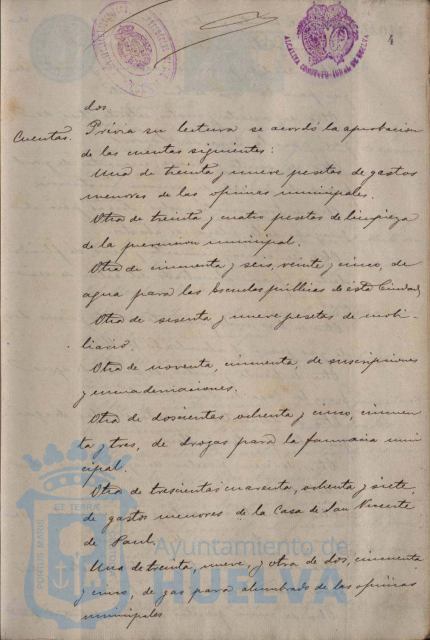 4
ALCALDIA CONSTITUCIONAL DE HUELVA
dos.
Cuentas.
Prévia su lectura se acordó la aprobacion
de las cuentas siguientes:
Una de treinta y nueve pesetas de gastos
menores de las oficinas municipales.
Otra de treinta y cuatro pesetas de limpieza
de la municipal.
Otra de cincuenta y seis, veinte y cinco, de
agua para las Escuelas públicas de esta Ciudad,
Otra de sesenta y nueve pesetas de mobi-
liario.
Otra de noventa, cincuenta, de suscripciones
y encuadernaciones.
Otra de doscientas ochenta y cinco, cincuen-
ta y tres, de drogas para la farmacia muni-
cipal.
Otra de trescientas cuarenta, ochenta y siete,
de gastos menores de la Casa de San Vicente
de Paul.
Una de treinta, nueve, y otra de dos, cincuenta
y cinco, de gas para alumbrado de las oficinas
municipales
PORTUS MARIS ET TERRÆ
Ayuntamiento de
HUELVA